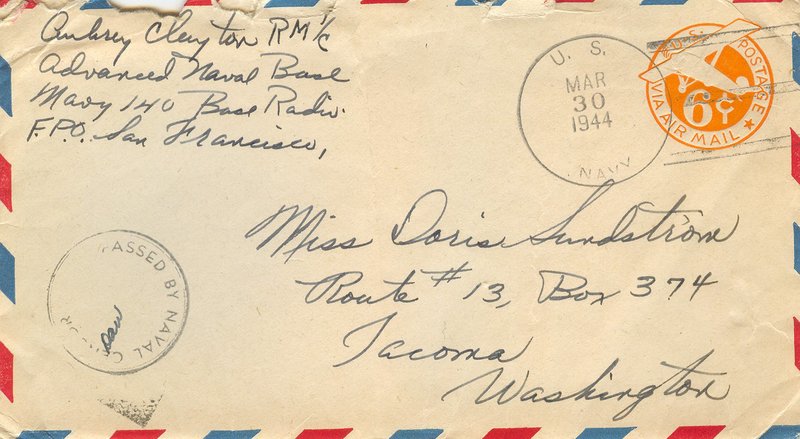 Aubrey Clayton RM 1/c
Advanced Naval Base
Navy 140 Base Radio.
F.P.O. San Francisco,
U. S.
MAR
30
1944
NAVY
U.S. POSTAGE
6¢
VIA AIR MAIL
Miss Doris Sundstrom
Route # 13, Box 374
Tacoma
Washington
PASSED BY NAVAL